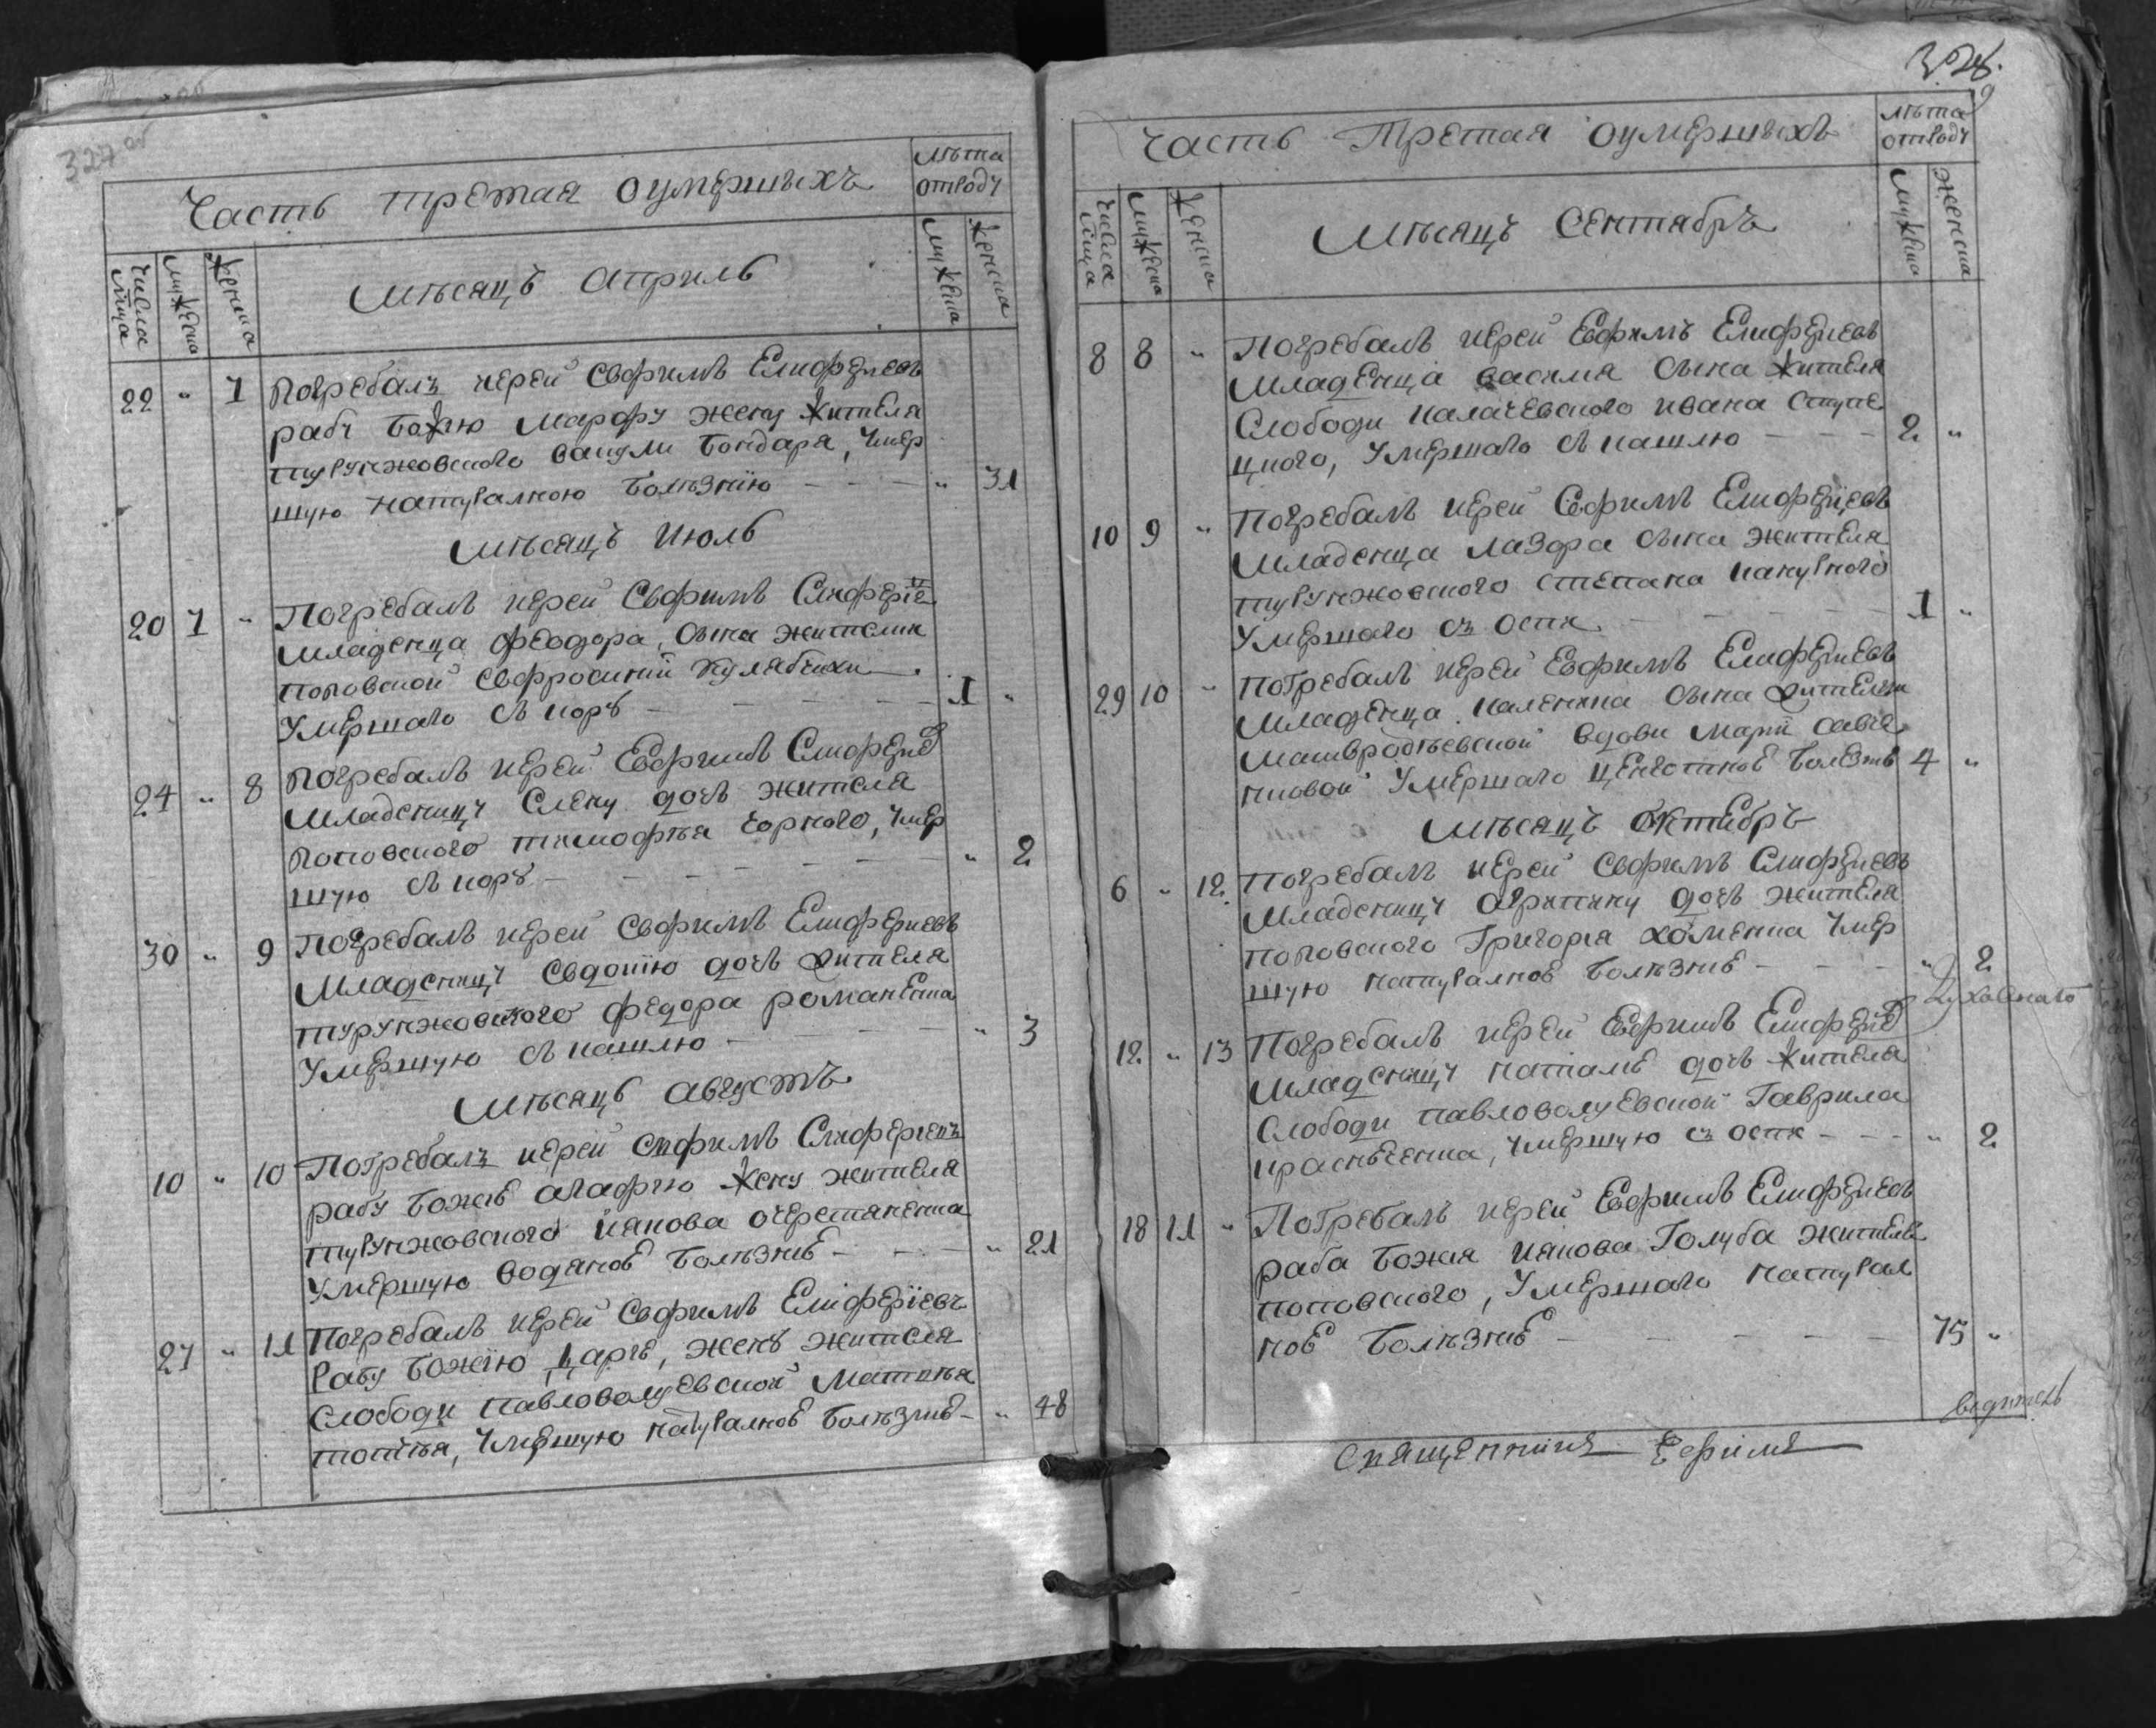 327 об
Часть третая оумершыхъ
лѣта отроду
числа мца
мужеска
женска
Мѣсяцъ Априль
мужеска
женска
22 " 7 Погребалъ иерей Евфимъ Елифериевъ
рабу Божию Марфу жену жителя
турунжовского вакули Бондаря, умер
шую натуралною болѣзнїю - - - " 31
Мѣсяцъ Июль
20 7 " Погребалъ иерей Евфимъ Елиферїе
младенца Феодора, сына жителки
поповской Евфросинїи Кулябчихи
Умершаго съ корѣ - - - - - 1 "
24 " 8 Погребалъ иерей Евфимъ Елиферие
младеницу Елену дочь жителя
поповского тимофѣя Чорного, умер
шую съ корѣ - - - - - " 2
30 " 9 Погребалъ иерей Евфимъ Елифериевъ
младеницу Евдокїю дочь жителя
турунжовского федора романенка
Умершую съ кашлю - - - " 3
Мѣсяць Августъ
10 " 10 Погребалъ иерей Евфимъ Елифериевъ
рабу Божию агафию жену жителя
турунжовского иякова очеретяненка
Умершую водяною болѣзнию - - - " 21
27 " 11 Погребалъ иерей Евфимъ Елиферїевъ
рабу Божїю Дарю, жену жителя
слободи павловолуевской Матвѣя
, умершую натуралною болѣзнию - " 48
328
Часть Третая оумершыхъ
лѣта отроду
числа мца
мужеска
женска
Мѣсяцъ Сентябръ
мужеска
женска
8 8 " Погребалъ иерей Евфимъ Елифериевъ
младенца василя сына жителя
Слободи калачевского ивана ступе
цкого, умершаго съ кашлю - - - 2 "
10 9 " Погребалъ иерей Евфимъ Елиферїевъ
младенца лазора сына жителя
турунжовского степана
Умершаго съ оспи - - - - - 1 "
29 10 " Погребалъ иерей Евфимъ Елифериевъ
младенца каленика сына жителки
вдови Марїи савче
нковой умершаго болезнь 4 "
Мѣсяцъ Октябръ
6 " 12 Погребалъ иерей Евфимъ Елифериевъ
младеницу агрипину дочь жителя
поповского Григория хоменка умер
шую натуралною болѣзнию - - - " 2
12 " 13 Погребалъ иерей Евфимъ Елиферие
младеницу наталию дочь жителя
слободи павловолуевской Гаврила
, умершую съ оспи - - - " 2
18 11 " Погребалъ иерей Евфимъ Елифериевъ
раба Божия иякова Голуба жителя
поповского, умершаго натурал
ною болѣзнию - - - - - 75 "
Священникъ Ефимъ